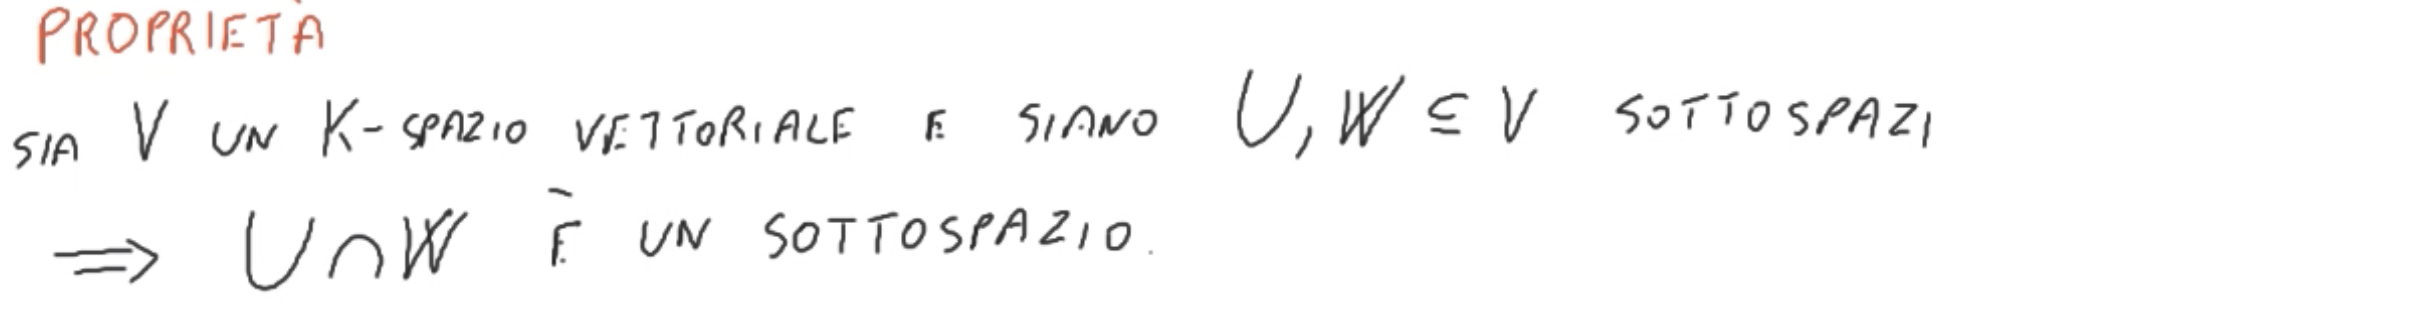 PROPRIETÀ
SIA V UN K-SPAZIO VETTORIALE E SIANO U, W ⊆ V SOTTOSPAZI
⇒ U∩W È UN SOTTOSPAZIO.